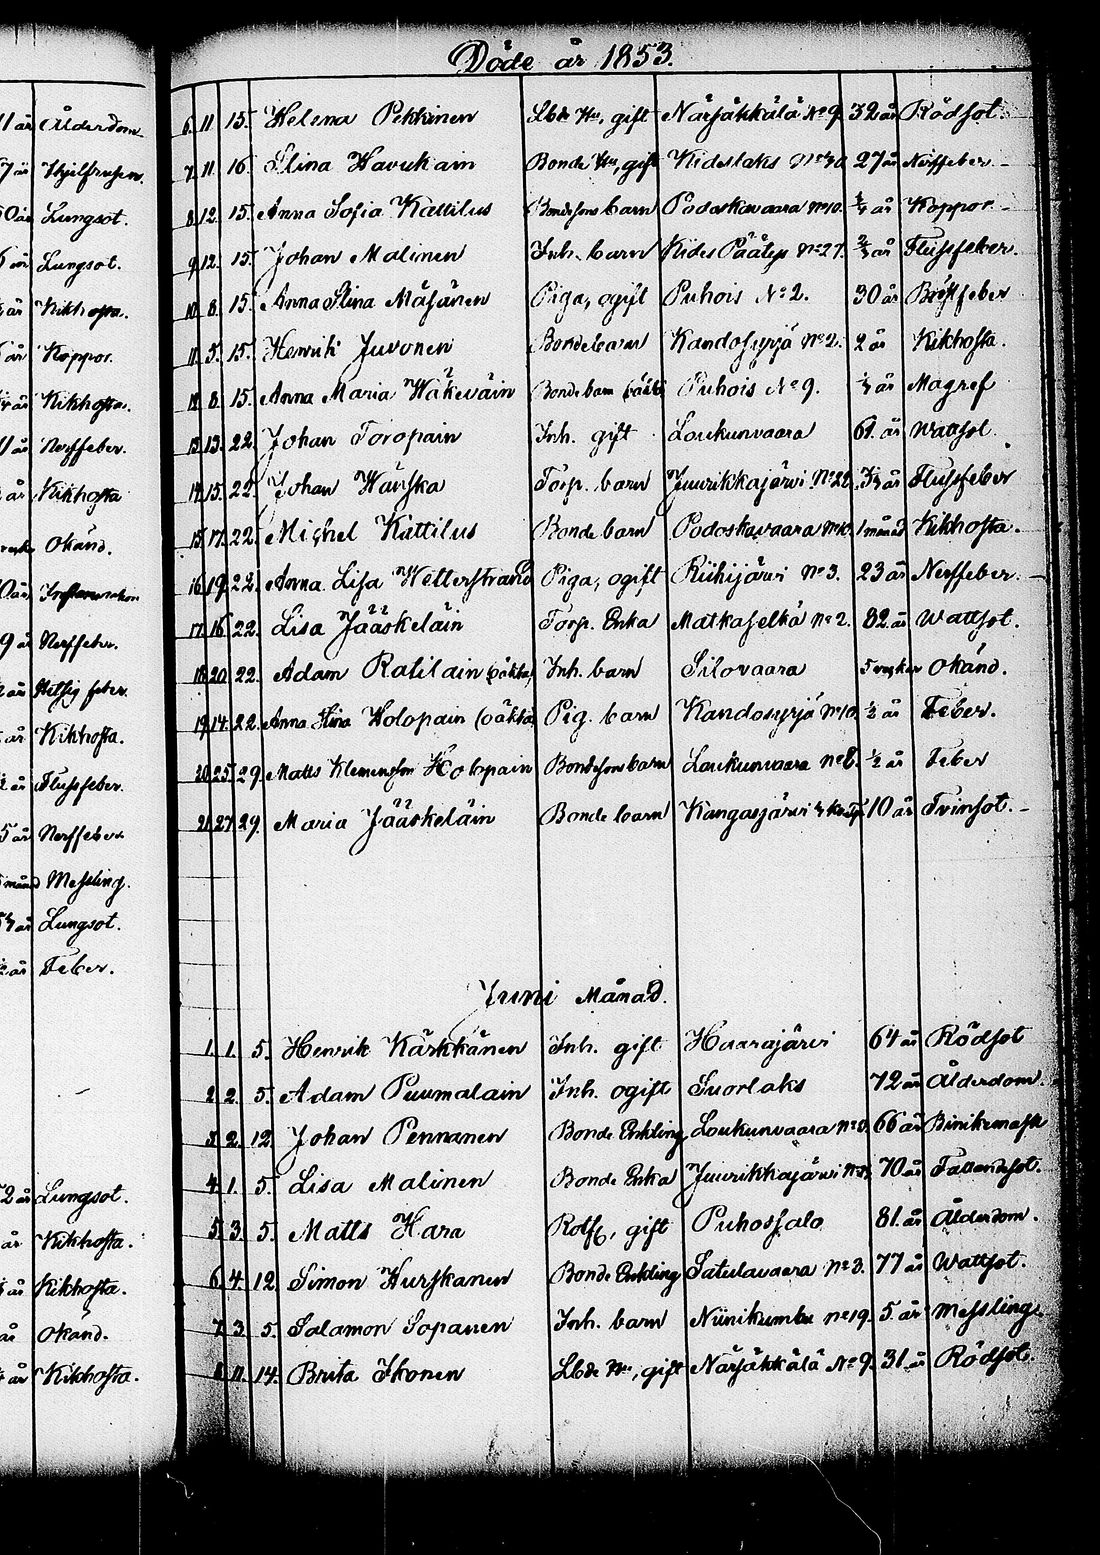 11 år Ålderdom
Lungsot.
Lungsot.
Kikhosta.
Koppor.
Kikhosta.
11 år Nerffeber.
år Kikhosta
Okänd.
9 år Nerffeber.
år Hetsig feber
år Kikhosta.
år Flussfeber.
5 år Nerffeber
månd Messling.
Lungsot.
år Feber.
2 år Lungsot.
år Kikhosta.
år Kikhosta.
år Okänd.
år Kikhosta.
Döde år 1853.
6. 11. 15. Helena Pekkinen Lbde Hu, gift Närsäkkälä No 9. 32 år Rödsot.
7. 11. 16. Stina Havukain Bonde Hu, gift Kideslaks No 30. 27 år Nerffeber.
8. 12. 15. Anna Sofia Kättilus Bondesons barn Podoskavaara No 10. år Koppor
9. 12. 15. Johan Malinen Inh. barn Kides Päätys No 27. år Flussfeber.
10. 8. 15. Anna Stina Mäsänen Piga, ogift Puhois No 2. 30 år Bröstfeber
11. 5. 15. Henrik Juvonen Bondebarn Kandosyrjä No 2. 2 år Kikhosta.
12. 8. 15. Anna Maria Wäkeväin Bonde barn Puhois No 9. år Magref
13. 13. 22. Johan Toropain Inh. gift Loukunvaara 61. år Wattsot.
14. 15. 22. Johan Hänska Torp. barn Juurikkajärvi No 22. år Flussfeber
15. 17. 22. Michel Kättilus Bonde barn Podoskavaara No 10. 1 månad Kikhosta.
16. 19. 22. Anna Lisa Wetterstrand Piga, ogift Riihijärvi No 3. 23 år Nerffeber.
17. 16. 22. Lisa Jääskeläin Torp. Enka Matkaselkä No 2. 82. år Wattsot.
18. 20. 22. Adam Ratilain (oäkta) Inh. barn Silovaara 5 veckor Okänd.
19. 14. 22. Anna Stina Holopain (oäkta) Pig. barn Kandosyrjä No 10. ½ år Feber.
20. 25. 29. Matts Klemensson Holopain Bondesons barn Loukunvaara No 8. ½ år Feber
21. 27. 29. Maria Jääskeläin Bonde barn Kangasjärvi 10 år Tvinsot.
Juni Månad.
1. 1. 5. Henrik Kärkkänen Inh. gift Haarajärvi 64 år Rödsot
2. 2. 5. Adam Puumalain Inh. ogift Suorlaks 72 år Ålderdom.
3. 2. 12. Johan Pennanen Bonde Enkling Loukunvaara 66 år Binikemask
4. 1. 5. Lisa Malinen Bonde Enka Juurikkajärvi 70 år Fallandesot.
5. 3. 5. Matts Hara Rotf, gift Puhossalo 81. år Ålderdom.
6. 4. 12. Simon Hurskanen Bonde Enkling Satulavaara No 3. 77 år Wattsot.
7. 3. 5. Salamon Sopanen Inh. barn Niinikumbu No 19. 5 år Messling.
8. 11. 14. Brita Ikonen Lbde Hu, gift Närsäkkälä No 9. 31. år Rödsot.